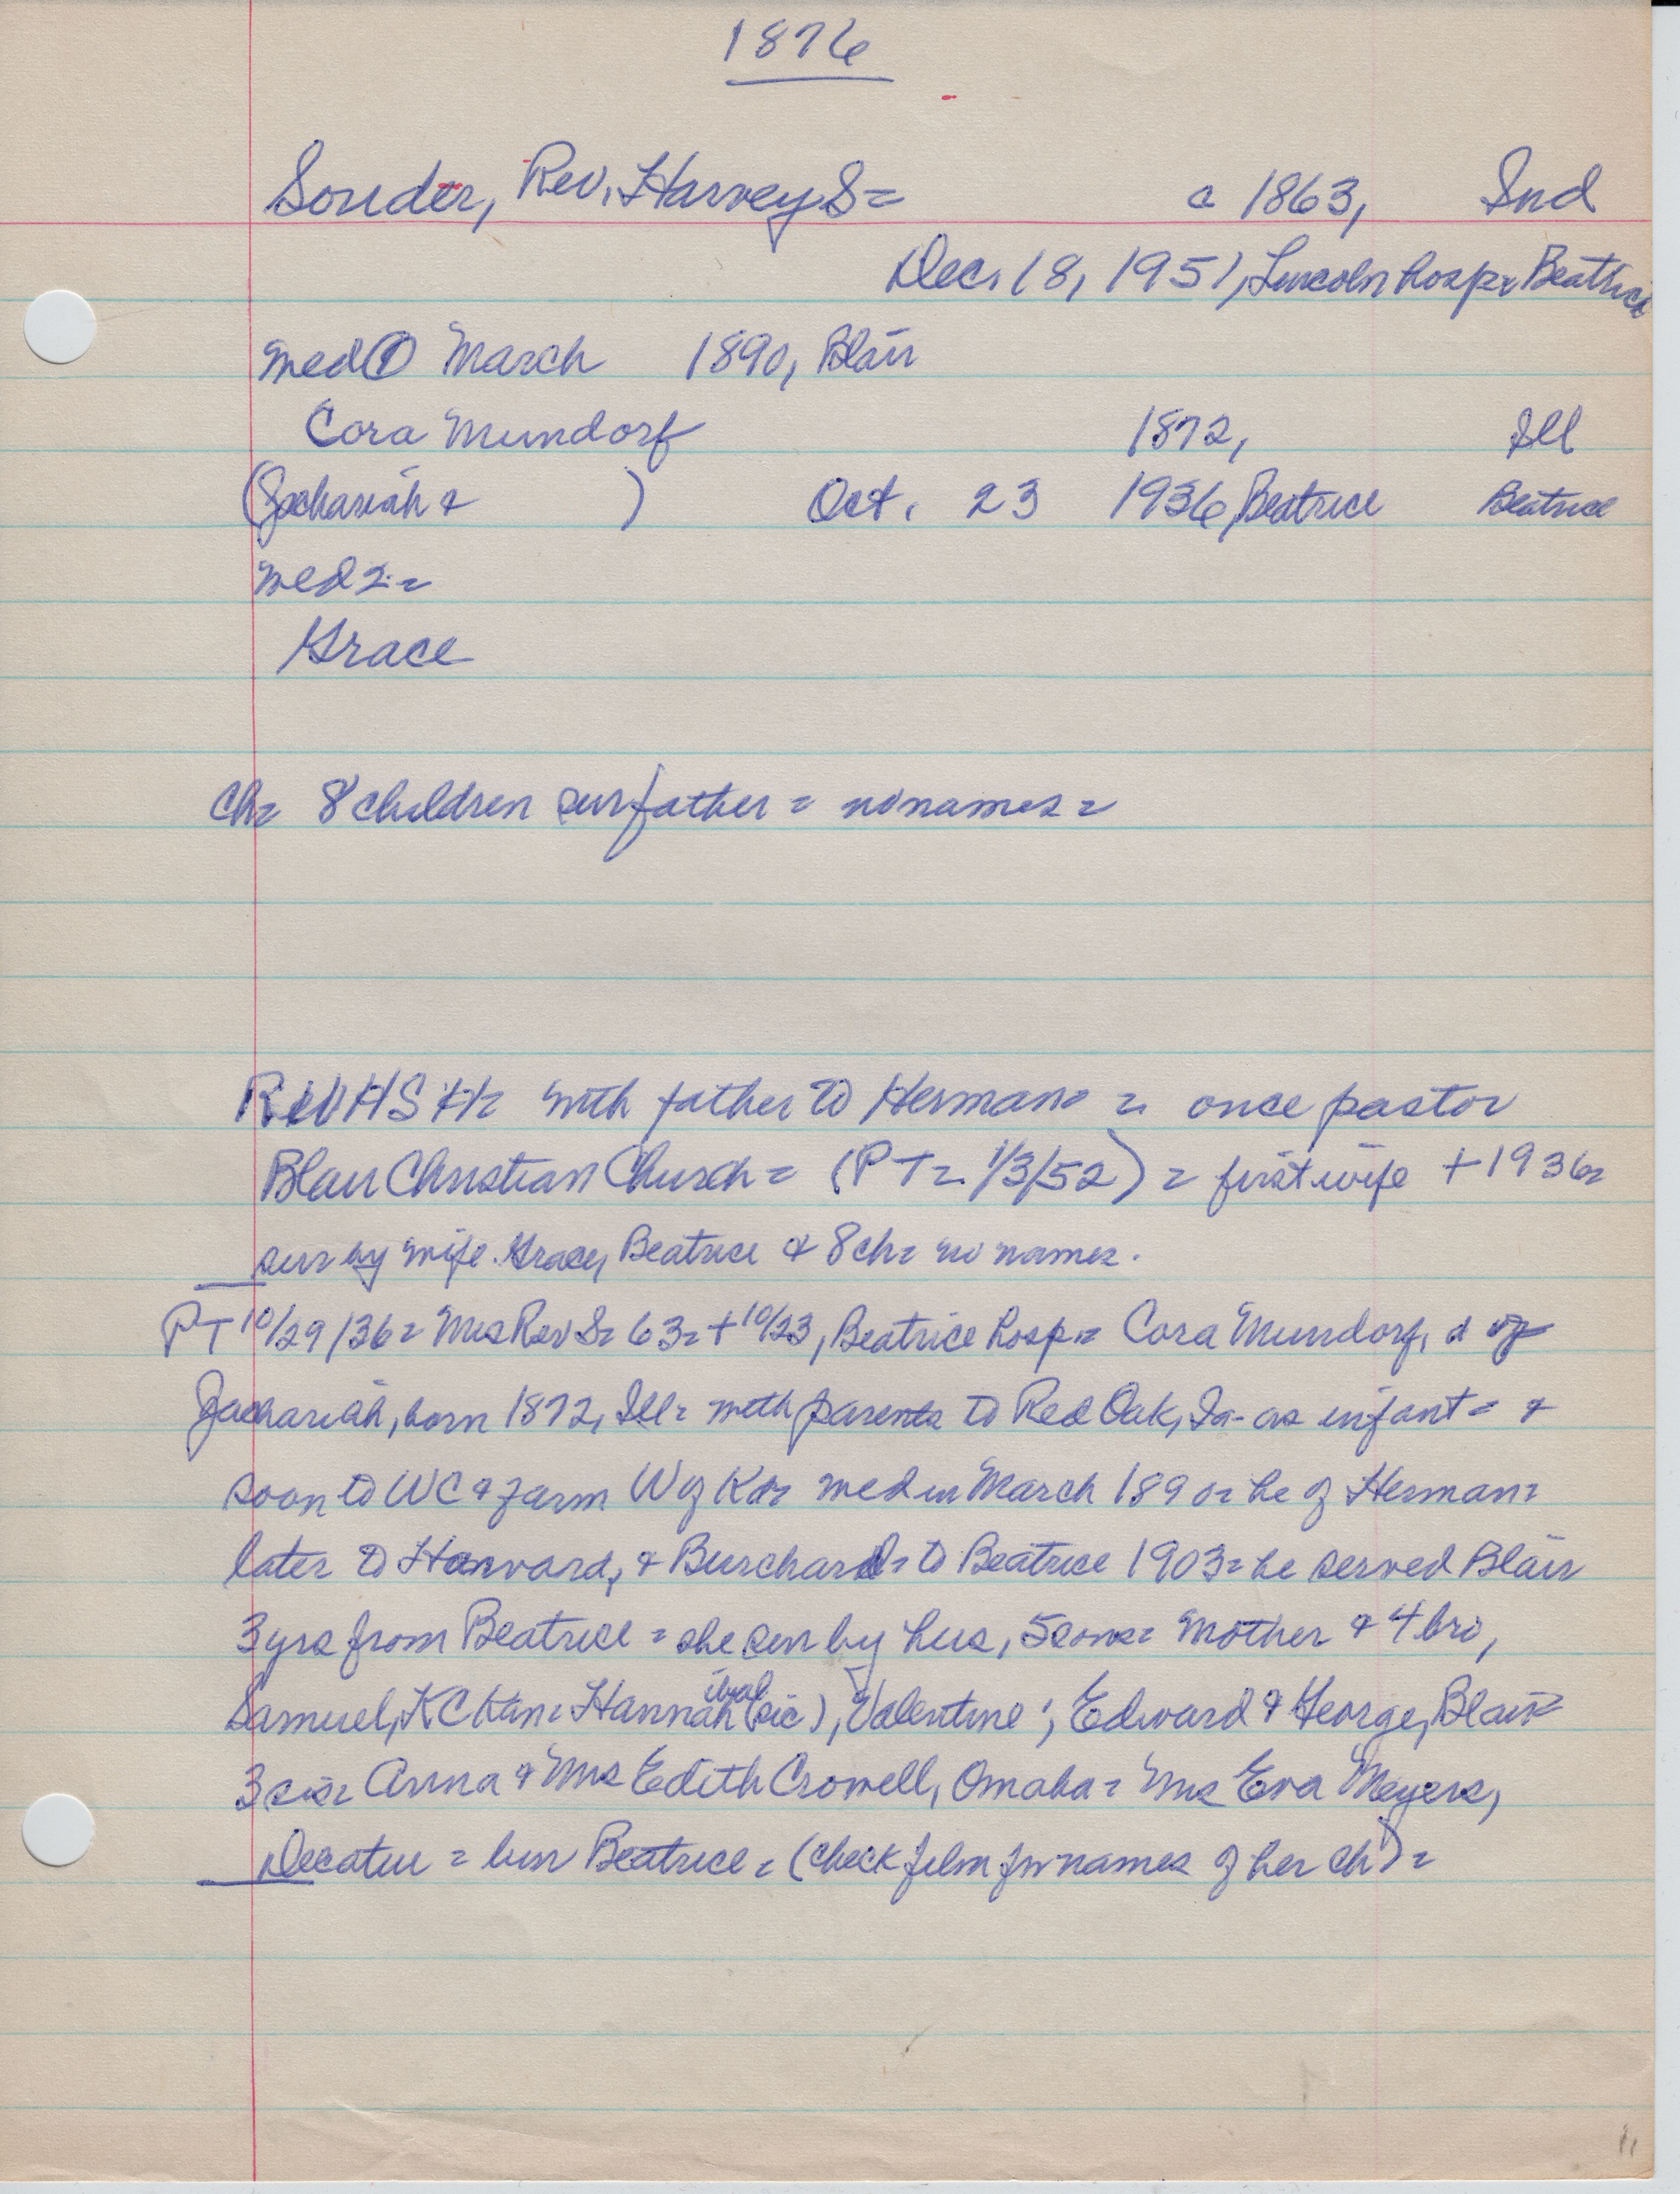 1876
Souder, Rev. Harvey S = c 1863, Ind
Dec. 18, 1951, Lincoln hosp = Beatrice
med ① March 1890, Blair
Cora Mundorf 1872, Ill
(Zachariah & ) Oct. 23 1936, Beatrice Beatrice
med 2 =
Grace
Ch = 8 children sur father = no names =
Rev HS = with father to Herman = once pastor
Blair Christian Church = (PT = 1/3/52) = first wife + 1936 =
sur by wife Grace, Beatrice & 8 ch = no names.
PT 10/29/36 = Mrs Rev S = 63 = + 10/23, Beatrice hosp = Cora Mundorf, d of
Zachariah, born 1872, Ill = with parents to Red Oak, Ia - as infant = &
soon to WC & farm W of K = med in March 1890 = he of Herman =
later to Harvard, & Burchard = to Beatrice 1903 = he served Blair
3 yrs from Beatrice = she sur by hus, 5 sons = Mother & 4 bro,
Samuel, KC Kan = Hannah (sic) ibal, Valentine ; Edward & George, Blair =
3 sis = Anna & Mrs Edith Crowell, Omaha = Mrs Eva Meyers,
Decatur = bur Beatrice = (check film for names of her ch) =